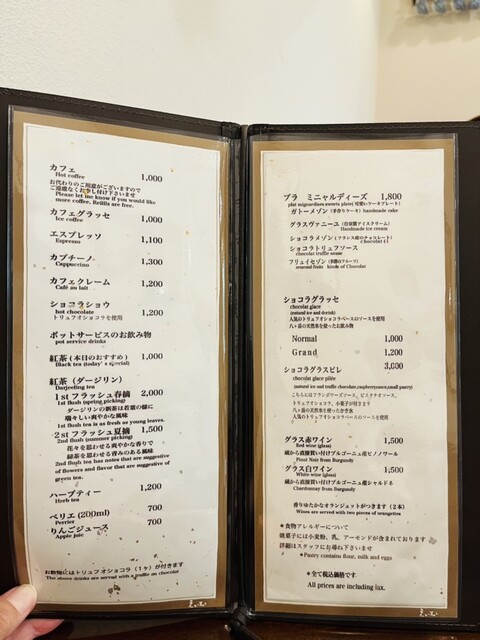 カフェ 1,000
Hot coffee
お代わりのご用意がございますので
ご遠慮なくお申し付け下さいませ
Please let me know if you would like
more coffee. Refills are free.
カフェグラッセ 1,000
Ice coffee
エスプレッソ 1,100
Espresso
カプチーノ 1,300
Cappuccino
カフェクレーム 1,200
Café au lait
ショコラショウ
hot chocolate 1,200
トリュフオショコラを使用
ポットサービスのお飲み物
pot service drinks
紅茶(本日のおすすめ) 1,000
Black tea (today's special)
紅茶(ダージリン)
Darjeeling tea
1st フラッシュ春摘 2,000
1st flush (spring picking)
ダージリンの新茶は若葉の様に
瑞々しい爽やかな風味
1st flush tea is as fresh as young leaves.
2st フラッシュ夏摘 1,500
2nd flush (summer picking)
花々を思わせる爽やかな香りで
緑茶を思わせる青みのある風味
2nd flush tea has notes that are suggestive
of flowers and flavor that are suggestive of
green tea.
ハーブティー 1,200
Herb tea
ペリエ (200ml) 700
Perrier
りんごジュース 700
Apple juice
お飲物にはトリュフオショコラ(1ヶ)が付きます
The above drinks are served with a truffle au chocolat
プラ ミニャルディーズ 1,800
plat mignardises sweets plate(可愛いケーキプレート)
ガトーメゾン(手作りケーキ) handmade cake
グラスヴァニーユ(自家製アイスクリーム)
Handmade ice cream
ショコラメゾン(フランス産のチョコレート)
ショコラトリュフソース
chocolat truffe sause
フリュイセゾン(季節のフルーツ)
seasonal fruits kinds of Chocolat
ショコラグラッセ
chocolat glace
(natural ice and dorink)
人気のトリュフオショコラベースのソースを使用
八ヶ岳の天然氷を使ったお飲み物
Normal 1,000
Grand 1,200
ショコラグラスピレ 3,000
chocolat glace pilée
こちらにはフランボワーズソース、ピスタチオソース、
トリュフオショコラ、小菓子が付きます
八ヶ岳の天然氷を使ったかき氷
人気のトリュフオショコラベースのソースを使用
グラス赤ワイン 1,500
Red wine (glass)
蔵から直接買い付けブルゴーニュ産ピノノワール
Pinot Noir from Burgundy
グラス白ワイン 1,500
White wine (glass)
蔵から直接買い付けブルゴーニュ産シャルドネ
Chardonnay from Burgundy
香りゆたかなオランジェットがつきます(2本)
Wines are served with two pieces of orangettes
*食物アレルギーについて
焼菓子には小麦粉、乳、アーモンドが含まれております
詳細はスタッフにお尋ね下さいませ
*Pastry contains flour, milk and eggs
*全て税込価格です
All prices are including tax.